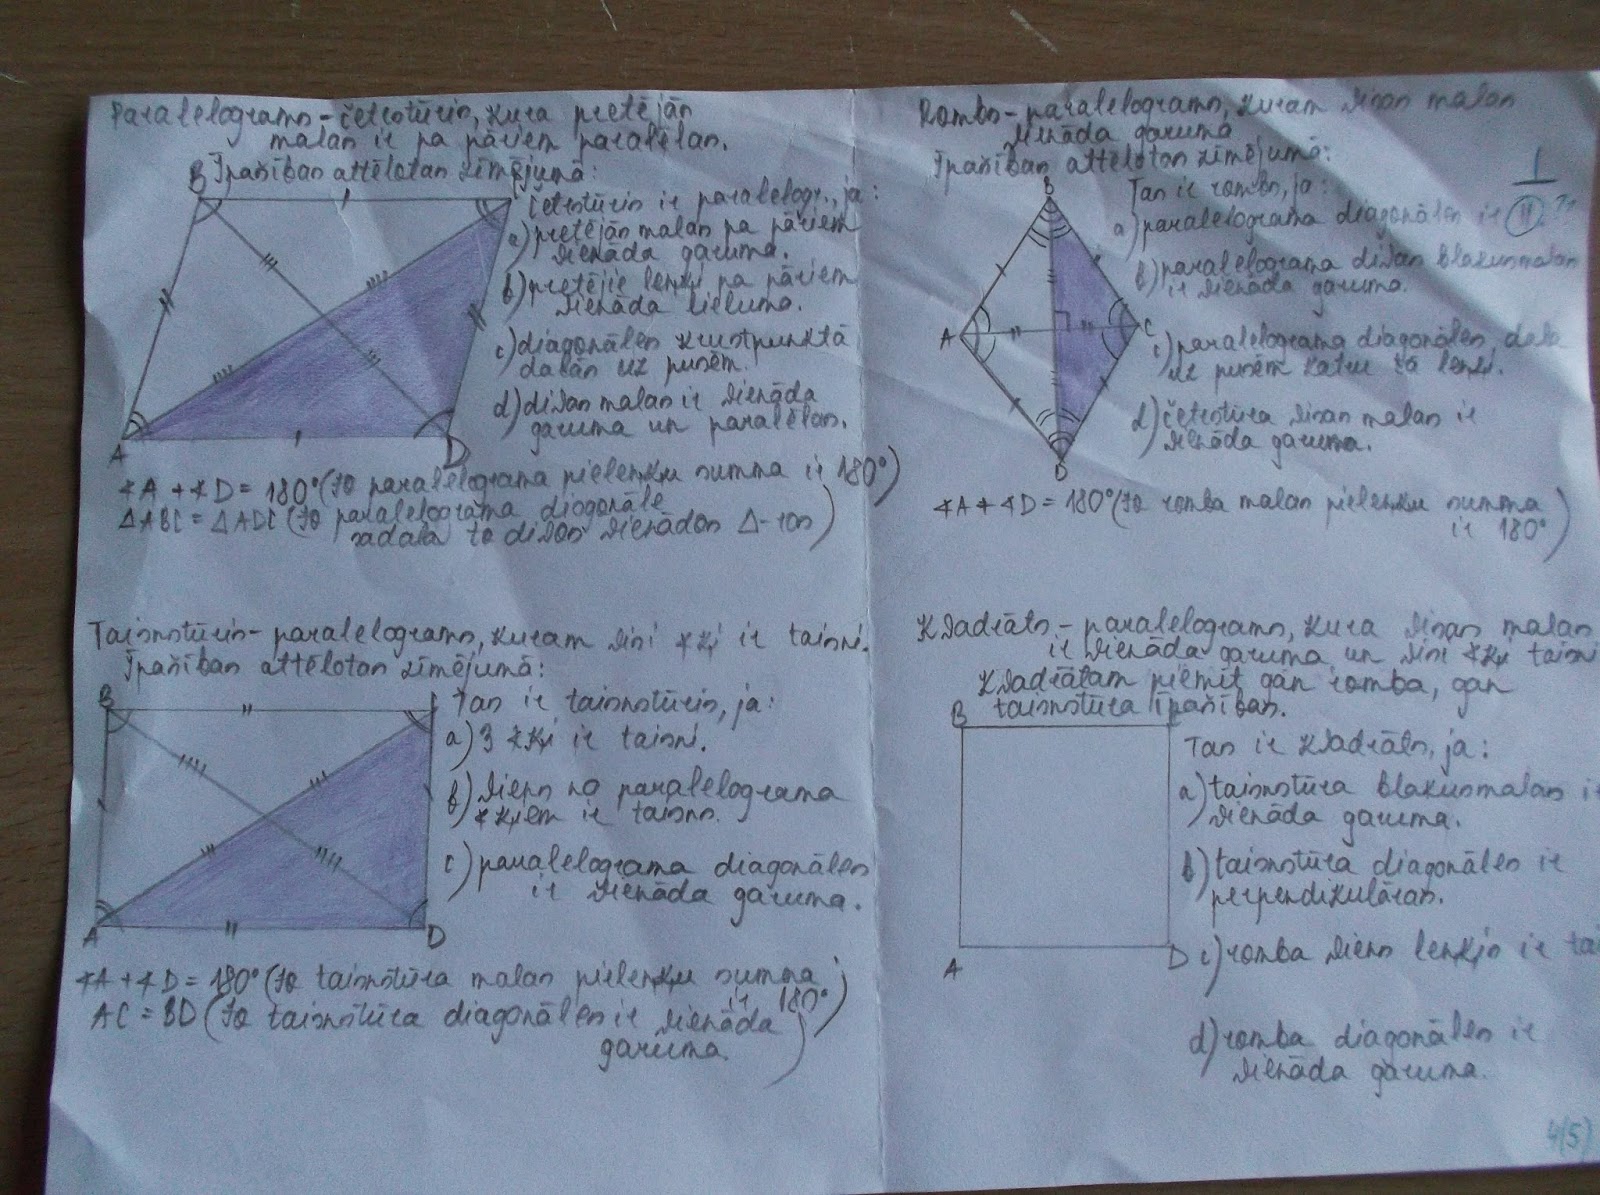 Paralelograms - četrstūris, kura pretējās
malas ir pa pāriem paralēlas.
Īpašības attēlotas zīmējumā:
B
Četrstūris ir paralelogr., ja:
a) pretējās malas pa pāriem
vienāda garuma.
b) pretējie leņķi pa pāriem
vienāda lieluma.
c) diagonāles krustpunktā
dalās uz pusēm.
d) divas malas ir vienāda
garuma un paralēlas.
A
D
∢A + ∢D = 180° (jo paralelograma pieleņķu summa ir 180°)
ΔABC = ΔADC (jo paralelograma diogonāle
sadala to divos vienādos Δ-ros)
Rombs - paralelograms, kuram visas malas
vienāda garuma
Īpašības attēlotas zīmējumā:
B
Tas ir rombs, ja:
a) paralelograma diagonāles ir || ?!
⊥
b) paralelograma divas blakusmalas
ir vienāda garuma.
A
C
c) paralelograma diagonāles dala
uz pusēm katru tā leņķi.
d) četrstūra visas malas ir
vienāda garuma.
D
∢A + ∢D = 180° (jo romba malas pieleņķu summa
ir 180°)
Taisnstūris - paralelograms, kuram visi ∢ķi ir taisni.
Īpašības attēlotas zīmējumā:
B
Tas ir taisnstūris, ja:
a) 3 ∢ķi ir taisni.
b) viens no paralelograma
∢ķiem ir taisns.
c) paralelograma diagonāles
ir vienāda garuma.
A
D
∢A + ∢D = 180° (jo taisnstūra malas pieleņķu summa
ir 180°)
AC = BD (jo taisnstūra diagonāles ir vienāda
garuma.)
Kvadrāts - paralelograms, kura visas malas
ir vienāda garuma un visi ∢ķi taisni
Kvadrātam piemīt gan romba, gan
taisnstūra īpašības.
B
Tas ir kvadrāts, ja:
a) taisnstūra blakusmalas ir
vienāda garuma.
b) taisnstūra diagonāles ir
perpendikulāras.
A
D
c) romba viens leņķis ir tai
d) romba diagonāles ir
vienāda garuma.
4(5)